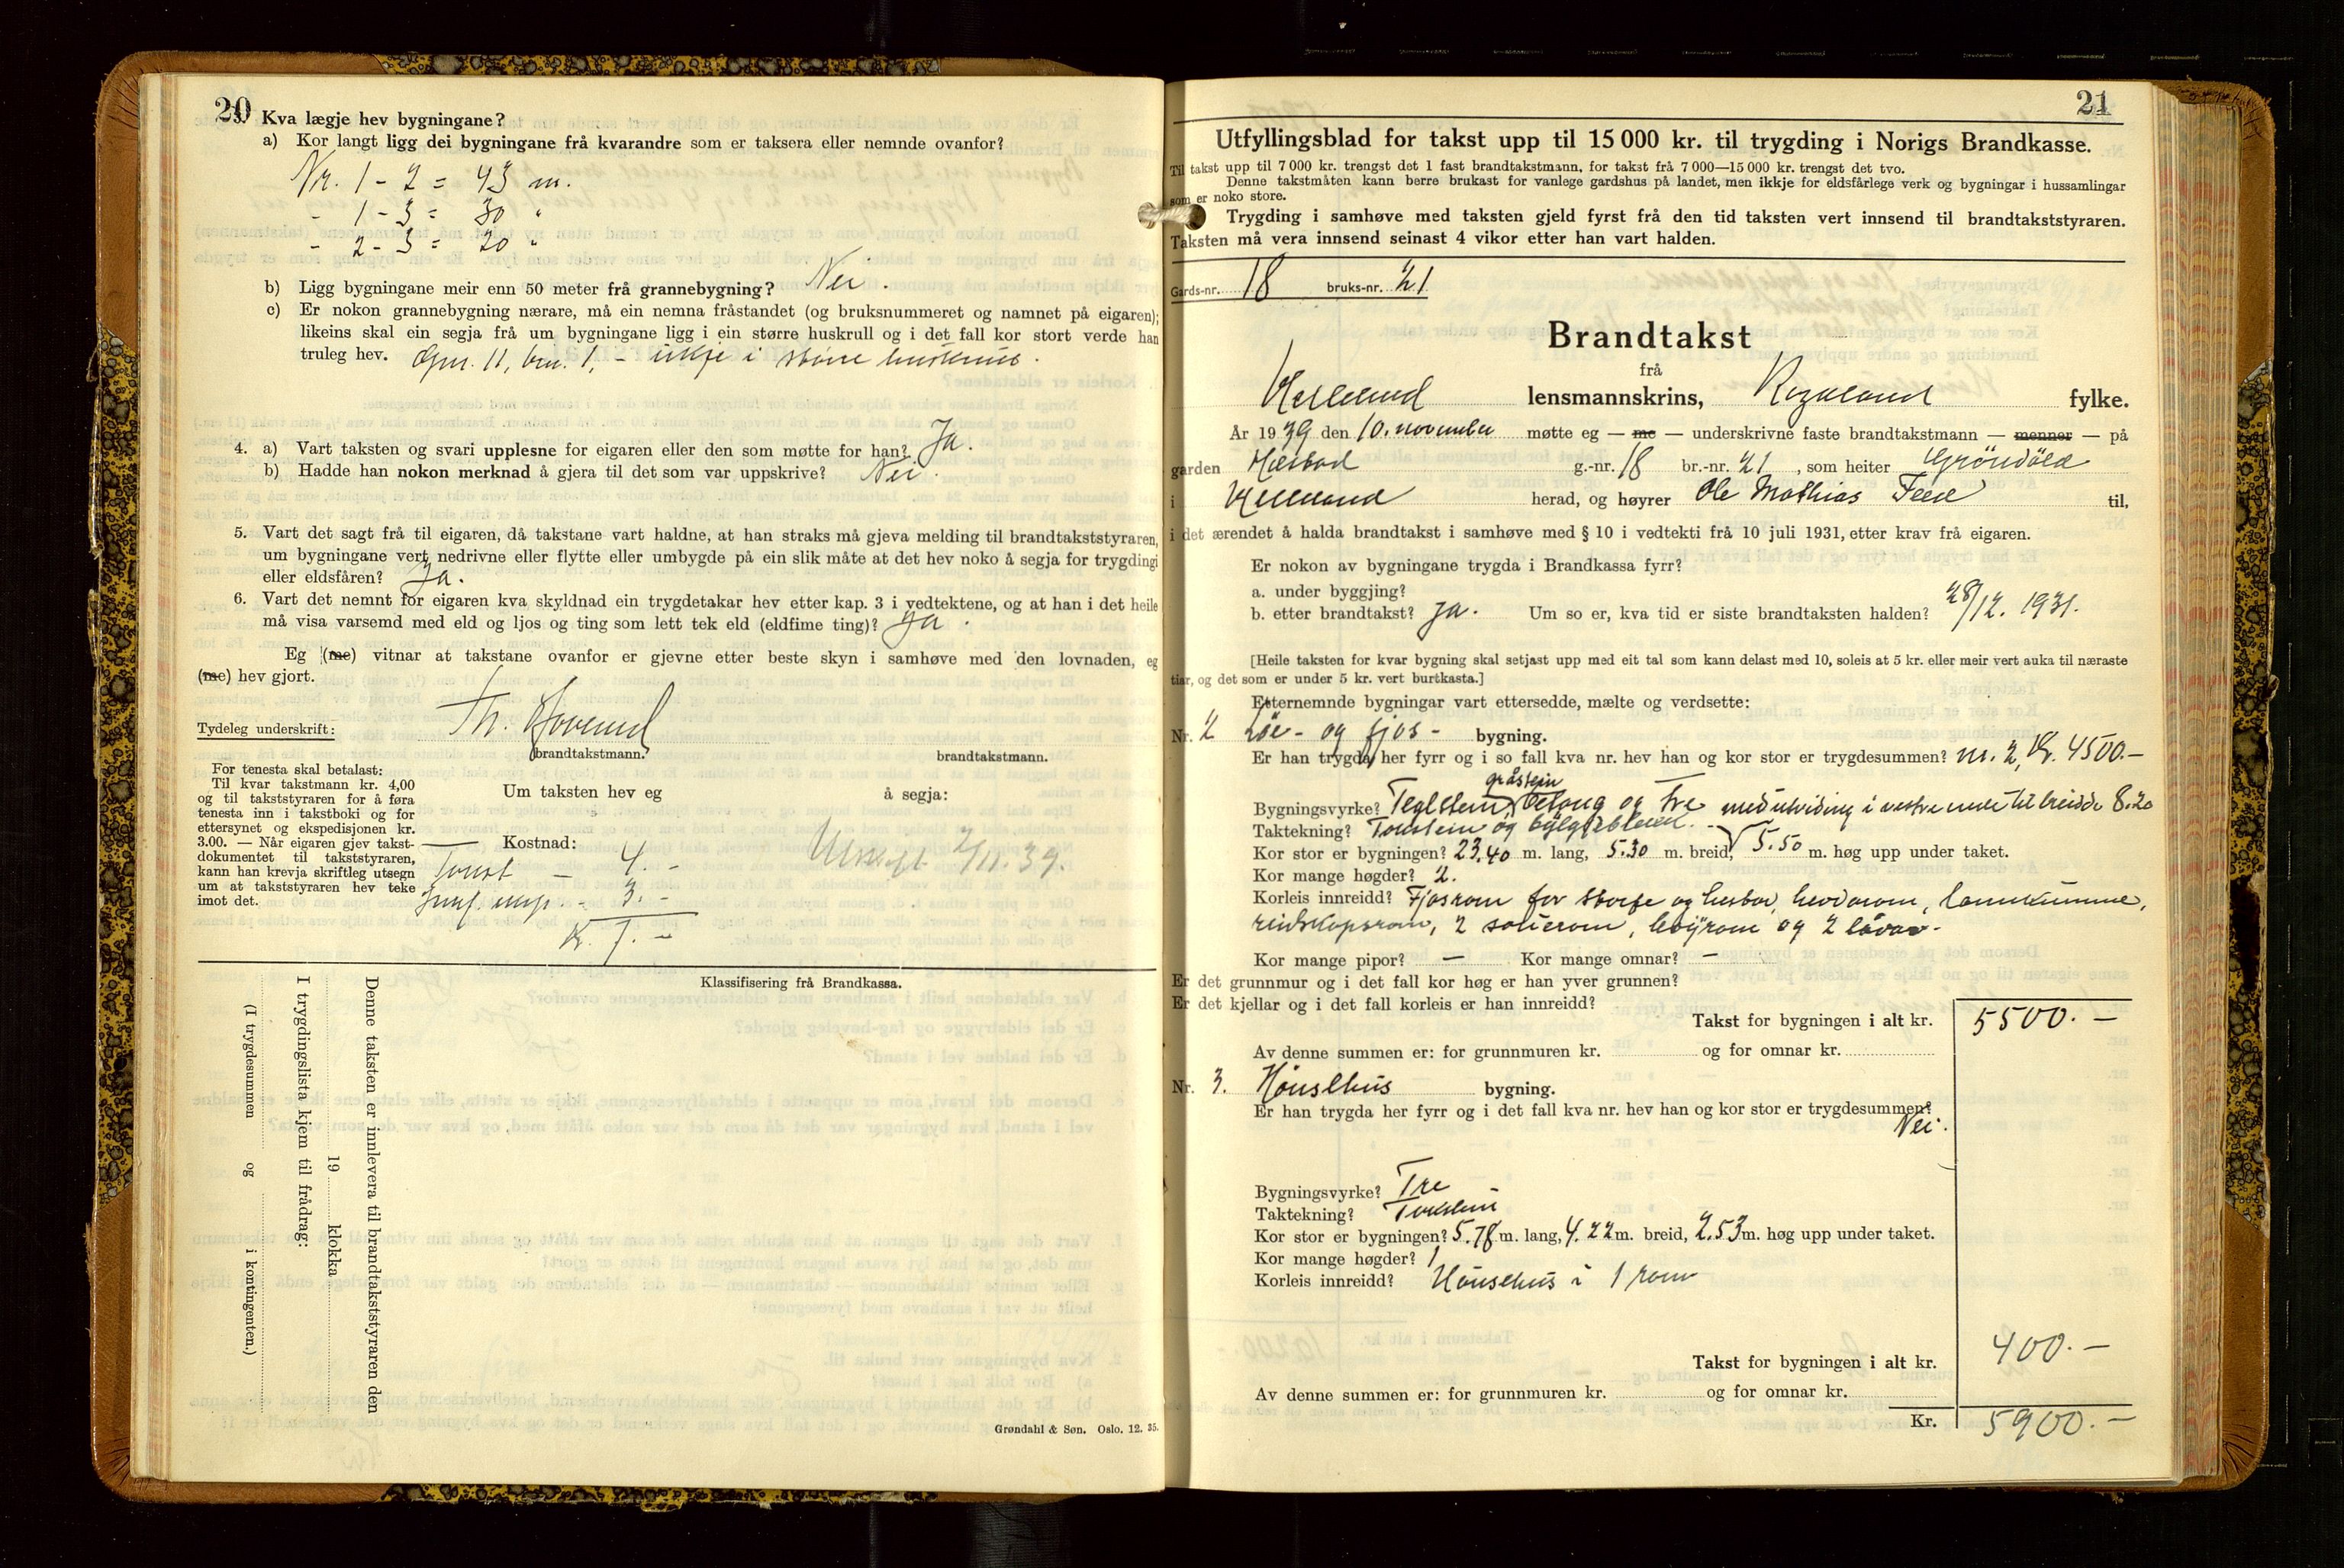 20
3. Kva lægje hev bygningane?
a) Kor langt ligg dei bygningane frå kvarandre som er taksera eller nemnde ovanfor?
Nr. 1 - 2 = 43 m.
- 1 - 3 = 30 "
- 2 - 3 = 20 "
b) Ligg bygningane meir enn 50 meter frå grannebygning? Nei.
c) Er nokon grannebygning nærare, må ein nemna fråstandet (og bruksnummeret og namnet på eigaren);
likeins skal ein segja frå um bygningane ligg i ein større huskrull og i det fall kor stort verde han
truleg hev. Gnr. 11, bnr. 1, - ikkje i större huskrull.
4. a) Vart taksten og svari upplesne for eigaren eller den som møtte for han? Ja.
b) Hadde han nokon merknad å gjera til det som var uppskrive? Nei.
5. Vart det sagt frå til eigaren, då takstane vart haldne, at han straks må gjeva melding til brandtakststyraren,
um bygningane vert nedrivne eller flytte eller umbygde på ein slik måte at det hev noko å segja for trygdingi
eller eldsfåren? Ja.
6. Vart det nemnt for eigaren kva skyldnad ein trygdetakar hev etter kap. 3 i vedtektene, og at han i det heile
må visa varsemd med eld og ljos og ting som lett tek eld (eldfime ting)? Ja.
Eg (me) vitnar at takstane ovanfor er gjevne etter beste skyn i samhøve med den lovnaden, eg
(me) hev gjort.
Tydeleg underskrift: Th.
brandtakstmann. brandtakstmann.
For tenesta skal betalast:
Til kvar takstmann kr. 4,00
og til takststyraren for å føra
tenesta inn i takstboki og for
ettersynet og ekspedisjonen kr.
3.00. — Når eigaren gjev takst-
dokumentet til takststyraren,
kann han krevja skriftleg utsegn
um at takststyraren hev teke
imot det.
Um taksten hev eg å segja:
Kostnad:
Takst - 4.-
3.-
Kr. 7.-
/11.39.
Klassifisering frå Brandkassa.
Denne taksten er innlevera til brandtakststyraren den
19 klokka
I trygdingslista kjem til frådrag:
(I trygdesummen og i kontingenten.)
Grøndahl & Søn. Oslo. 12. 35.
21
Utfyllingsblad for takst upp til 15 000 kr. til trygding i Norigs Brandkasse.
Til takst upp til 7 000 kr. trengst det 1 fast brandtakstmann, for takst frå 7 000—15 000 kr. trengst det tvo.
Denne takstmåten kann berre brukast for vanlege gardshus på landet, men ikkje for eldsfårlege verk og bygningar i hussamlingar
som er noko store.
Trygding i samhøve med taksten gjeld fyrst frå den tid taksten vert innsend til brandtakststyraren.
Taksten må vera innsend seinast 4 vikor etter han vart halden.
Gards-nr. 18 bruks-nr. 21
Brandtakst
frå
Helleland lensmannskrins, Rogaland fylke.
År 1939 den 10. november møtte eg — me — underskrivne faste brandtakstmann — menner — på
garden g.-nr. 18 br.-nr. 21, som heiter
i Helleland herad, og høyrer Ole Mathias til,
i det ærendet å halda brandtakst i samhøve med § 10 i vedtekti frå 10 juli 1931, etter krav frå eigaren.
Er nokon av bygningane trygda i Brandkassa fyrr?
a. under byggjing?
b. etter brandtakst? Ja. Um so er, kva tid er siste brandtaksten halden? 28/12. 1931.
[Heile taksten for kvar bygning skal setjast upp med eit tal som kann delast med 10, soleis at 5 kr. eller meir vert auka til næraste
tiar, og det som er under 5 kr. vert burtkasta.]
Etternemnde bygningar vart ettersedde, mælte og verdsette:
Nr. 2 Löe- og fjos- bygning.
Er han trygda her fyrr og i so fall kva nr. hev han og kor stor er trygdesummen? nr. 2, Kr. 4500.-
gråstein
Bygningsvyrke? Teglstein, betong og tre med utviding i vestre ende til breidde 8.20
Taktekning? Takstein og bylgjeblekk.
Kor stor er bygningen? 23.40 m. lang, 5.30 m. breid, 5.50 m. høg upp under taket.
Kor mange høgder? 2.
Korleis innreidd? Fjosrom for storfe og hestar, lannkumme,
reidskapsrom, 2 höyrom og 2 låvar.
Kor mange pipor? — Kor mange omnar? —
Er det grunnmur og i det fall kor høg er han yver grunnen?
Er det kjellar og i det fall korleis er han innreidd?
Takst for bygningen i alt kr. 5500.-
Av denne summen er: for grunnmuren kr. og for omnar kr.
Nr. 3. Hönsehus bygning.
Er han trygda her fyrr og i det fall kva nr. hev han og kor stor er trygdesummen?
Nei.
Bygningsvyrke? Tre
Taktekning? Takstein
Kor stor er bygningen? 5.78 m. lang, 4.22 m. breid, 2.53 m. høg upp under taket.
Kor mange høgder? 1
Korleis innreidd? Hönsehus i 1 rom
Takst for bygningen i alt kr. 400.-
Av denne summen er: for grunnmuren kr. og for omnar kr.
Kr. 5900.-